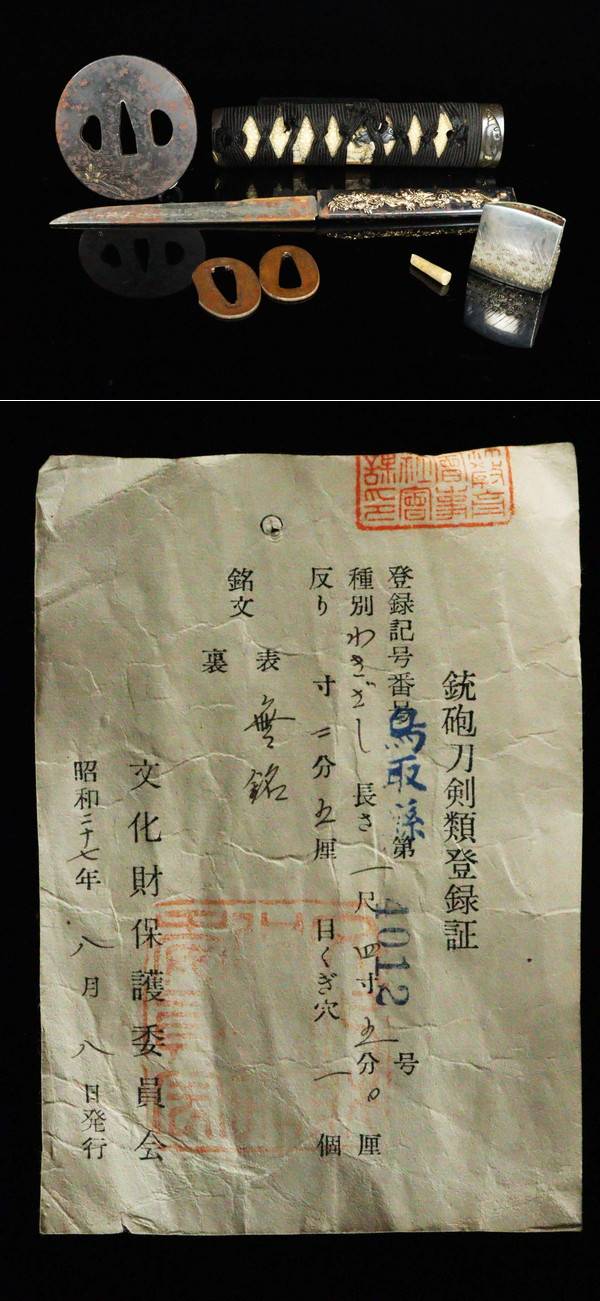 銃砲刀剣類登録証
登録記号番号 鳥取縣 第 4012 号
種別 わきざし 長さ 一尺 四寸 五分 0 厘
反り 寸 二分 五厘 目くぎ穴 一 個
銘文 表 無銘
裏
文化財保護委員会
昭和二十七年 八月 八日発行